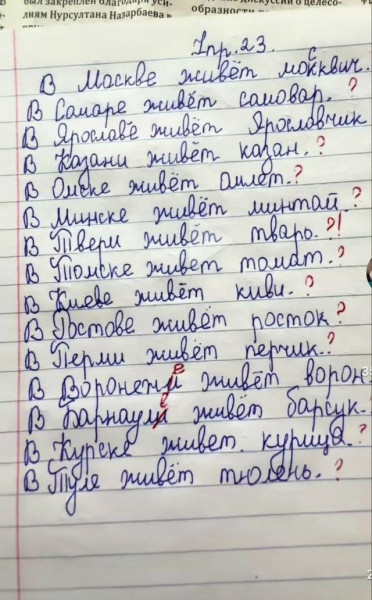 был закреплен благодаря уси-
лиям Нурсултана Назарбаева в
образности
Упр. 23.
В Москве живёт москвич.
В Самаре живёт самовар. ?
В Ярославе живёт Ярославчик
В Казани живёт казан. ?
В Омске живёт омлет. ?
В Минске живёт минтай. ?
В Твери живёт тварь. ?!
В Томске живет томат. ?
В Киеве живёт киви. ?
В Ростове живёт росток ?
В Перми живёт перчик. ?
В Воронеже живёт ворон
В Барнауле живёт барсук.
В Курске живет курица. ?
В Туле живёт тюлень. ?